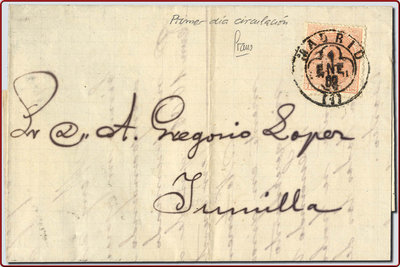 Primer día circulación
MADRID
1
ENE
(1)
Sr Dn A. Gregorio Lopez
Jumilla